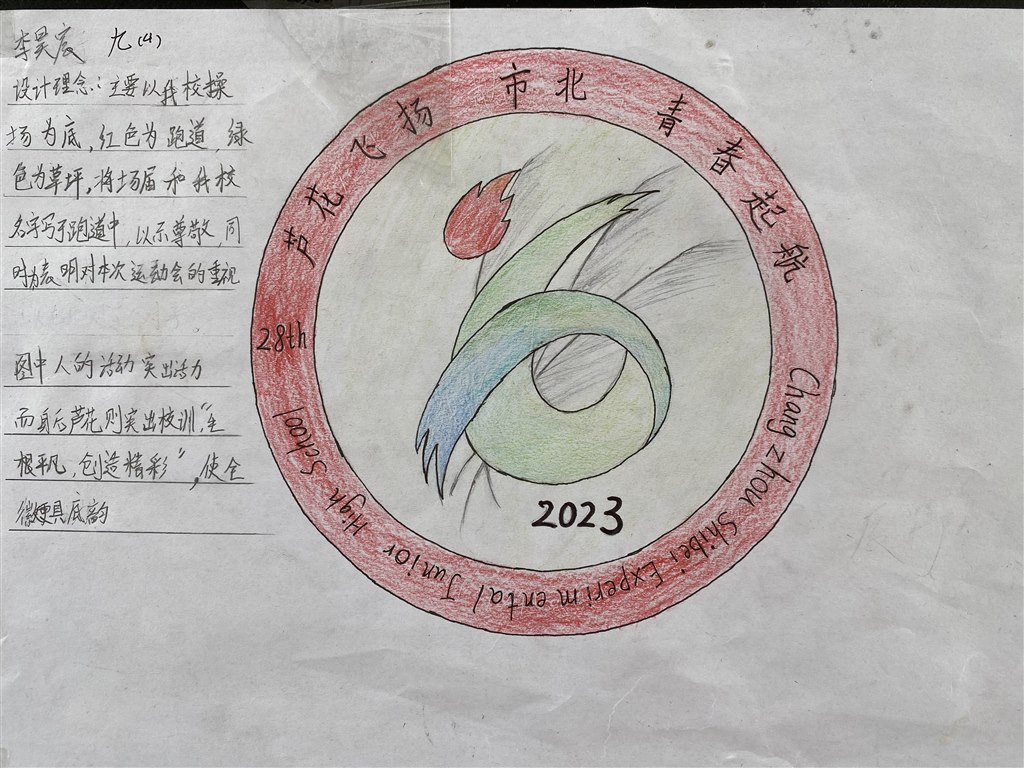 李昊宸 九(4)
设计理念:主要以我校操
场为底,红色为跑道,绿
色为草坪,将场届和我校
名字写于跑道中,以示尊敬,同
时为表明对本次运动会的重视
图中人的活动突出活力
而身后芦花则突出校训“主
根平凡,创造精彩”,使全
徽更具底韵
芦花飞扬 市北 青春起航
28th
Chang zhou Shibei Experimental Junior High School
2023